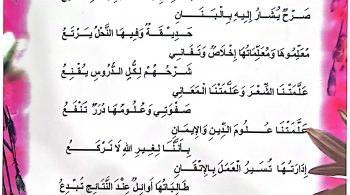 صَرْحٌ يُشَارُ إِلَيهِ بِالْبَنَـــانِ
حَدِيقَـةٌ وَفِيهَا النَّحْلُ يَرْتَعُ
مُعَلِّمُوهَا وَمُعَلِّمَاتُهَا إِخْلَاصٌ وَتَفَانِي
شَرْحُهُمْ لِكُلِّ الدُّرُوسِ يُقْنِعُ
عَلَّمَتْنَا الشِّعْرَ وَعَلَّمَتْنَا الْمَعَانِي
صَفْوَتِي وَعُلُومُهَا دُرَرٌ تَنْفَعُ
عَلَّمَتْنَا عُلُومَ الدِّينِ وَالْإِيمَانِ
بِأَنَّنَا لِغَيرِ اللهِ لَا نَرْكَعُ
إِدَارَتُهَا تُسَيِّرُ الْعَمَلَ بِالْإِتْقَانِ
طَالِبَاتُهَا أَوَائِلٌ عِنْدَ النَّتَائِجِ تُبْدِعُ